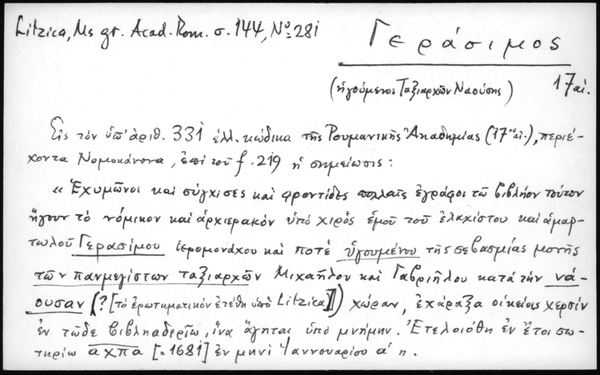 Litzica, Ms gr. Acad. Rom. σ. 144, Νο 281
Γεράσιμος
(ἡγούμενος Ταξιαρχῶν Ναούσης)
17 αἰ.
Εἰς τὸν ὑπ' ἀριθ. 331 ἑλλ. κώδικα τῆς Ρουμανικῆς Ἀκαδημίας (17ου αἰ.), περιέ-
χοντα Νομοκάνονα, ἐπὶ τοῦ f. 219 ἡ σημείωσις:
« Ἐχυμῶνοι καὶ σύγχισες καὶ φροντίδες πολλαῖς ἐγράφοι τῶ βιβλήον τούτον
ἤγουν τὸ νόμικον καὶ ἀρχιερακόν ὑπὸ χιρός ἐμοῦ τοῦ ἐλαχίστου καὶ ἁμαρ-
τωλοῦ Γερασίμου ἱερομονάχου καὶ ποτέ ὑγουμένου τῆς σεβασμίας μονῆς
τῶν πανμεγίστων ταξιαρχῶν Μιχαήλου καὶ Γαβριήλου κατὰ τὴν νά-
ουσαν (? [τὸ ἐρωτηματικόν ἐτέθη ὑπὸ Litzica]) χώραν, ἐχάραξα οἰκείαις χερσίν
ἐν τῶδε βιβληαδερίω, ἵνα ἄγηται ὑπό μνήμην. Ἐτελοιόθη ἐν ἔτοι σω-
τηρίω αχπα [=1681] ἐν μηνὶ Ἰαννουαρίου α' η.